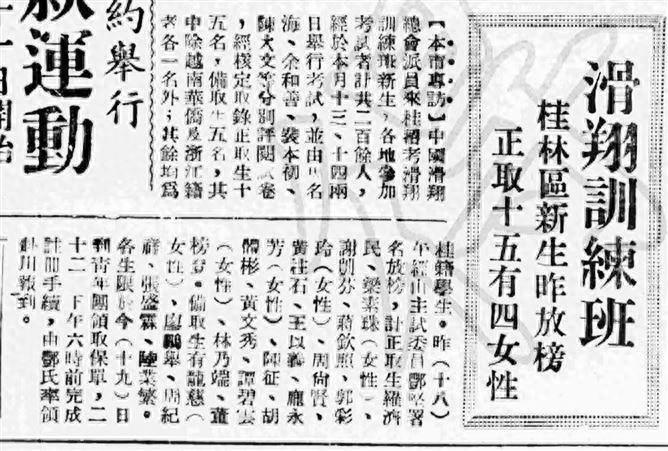 滑翔訓練班
桂林區新生昨放榜
正取十五有四女性
【本市專訪】中國滑翔
總會派員來桂招考滑翔
訓練班新生，各地參加
考試者計共二百餘人，
經於本月十三、十四兩
日舉行考試，並由
海、余和善、裴本初、
陳大文等分別評閱試卷
，經核定取錄正取生十
五名，備取生五名，其
中除越南華僑及浙江籍
者各一名外；其餘均爲
桂籍學生。昨（十八）
午經由主試委員鄭
名放榜，計正取生羅濟
民、梁素珠（女性）、
謝朗芬、蔣欽照、郭彩
玲（女性）、周尙賢、
黃柱石、王以義、龐永
芳（女性）、陳征、胡
體彬、黃文秀、譚碧雲
（女性）、林乃端、董
榜 。備取生有龍慈（
女性）、廖鵬舉、周紀
 、張盛霖、陸業繁。
各生限於今（十九）日
到青年團領取保單，二
十二 下午六時前完成
註冊手續，由鄭氏率領
赴川報到。
約舉行
運動
開始